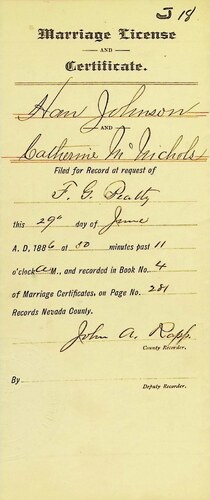 J 18
Marriage License
AND
Certificate.
Han Johnson
AND
Catherine McNichols
Filed for Record at request of
F. G. Beatty
this 29th day of June
A. D. 1886 at 30 minutes past 11
o'clock A M., and recorded in Book No. 4
of Marriage Certificates, on Page No. 281
Records Nevada County.
John A. Rapp.
County Recorder.
By
Deputy Recorder.